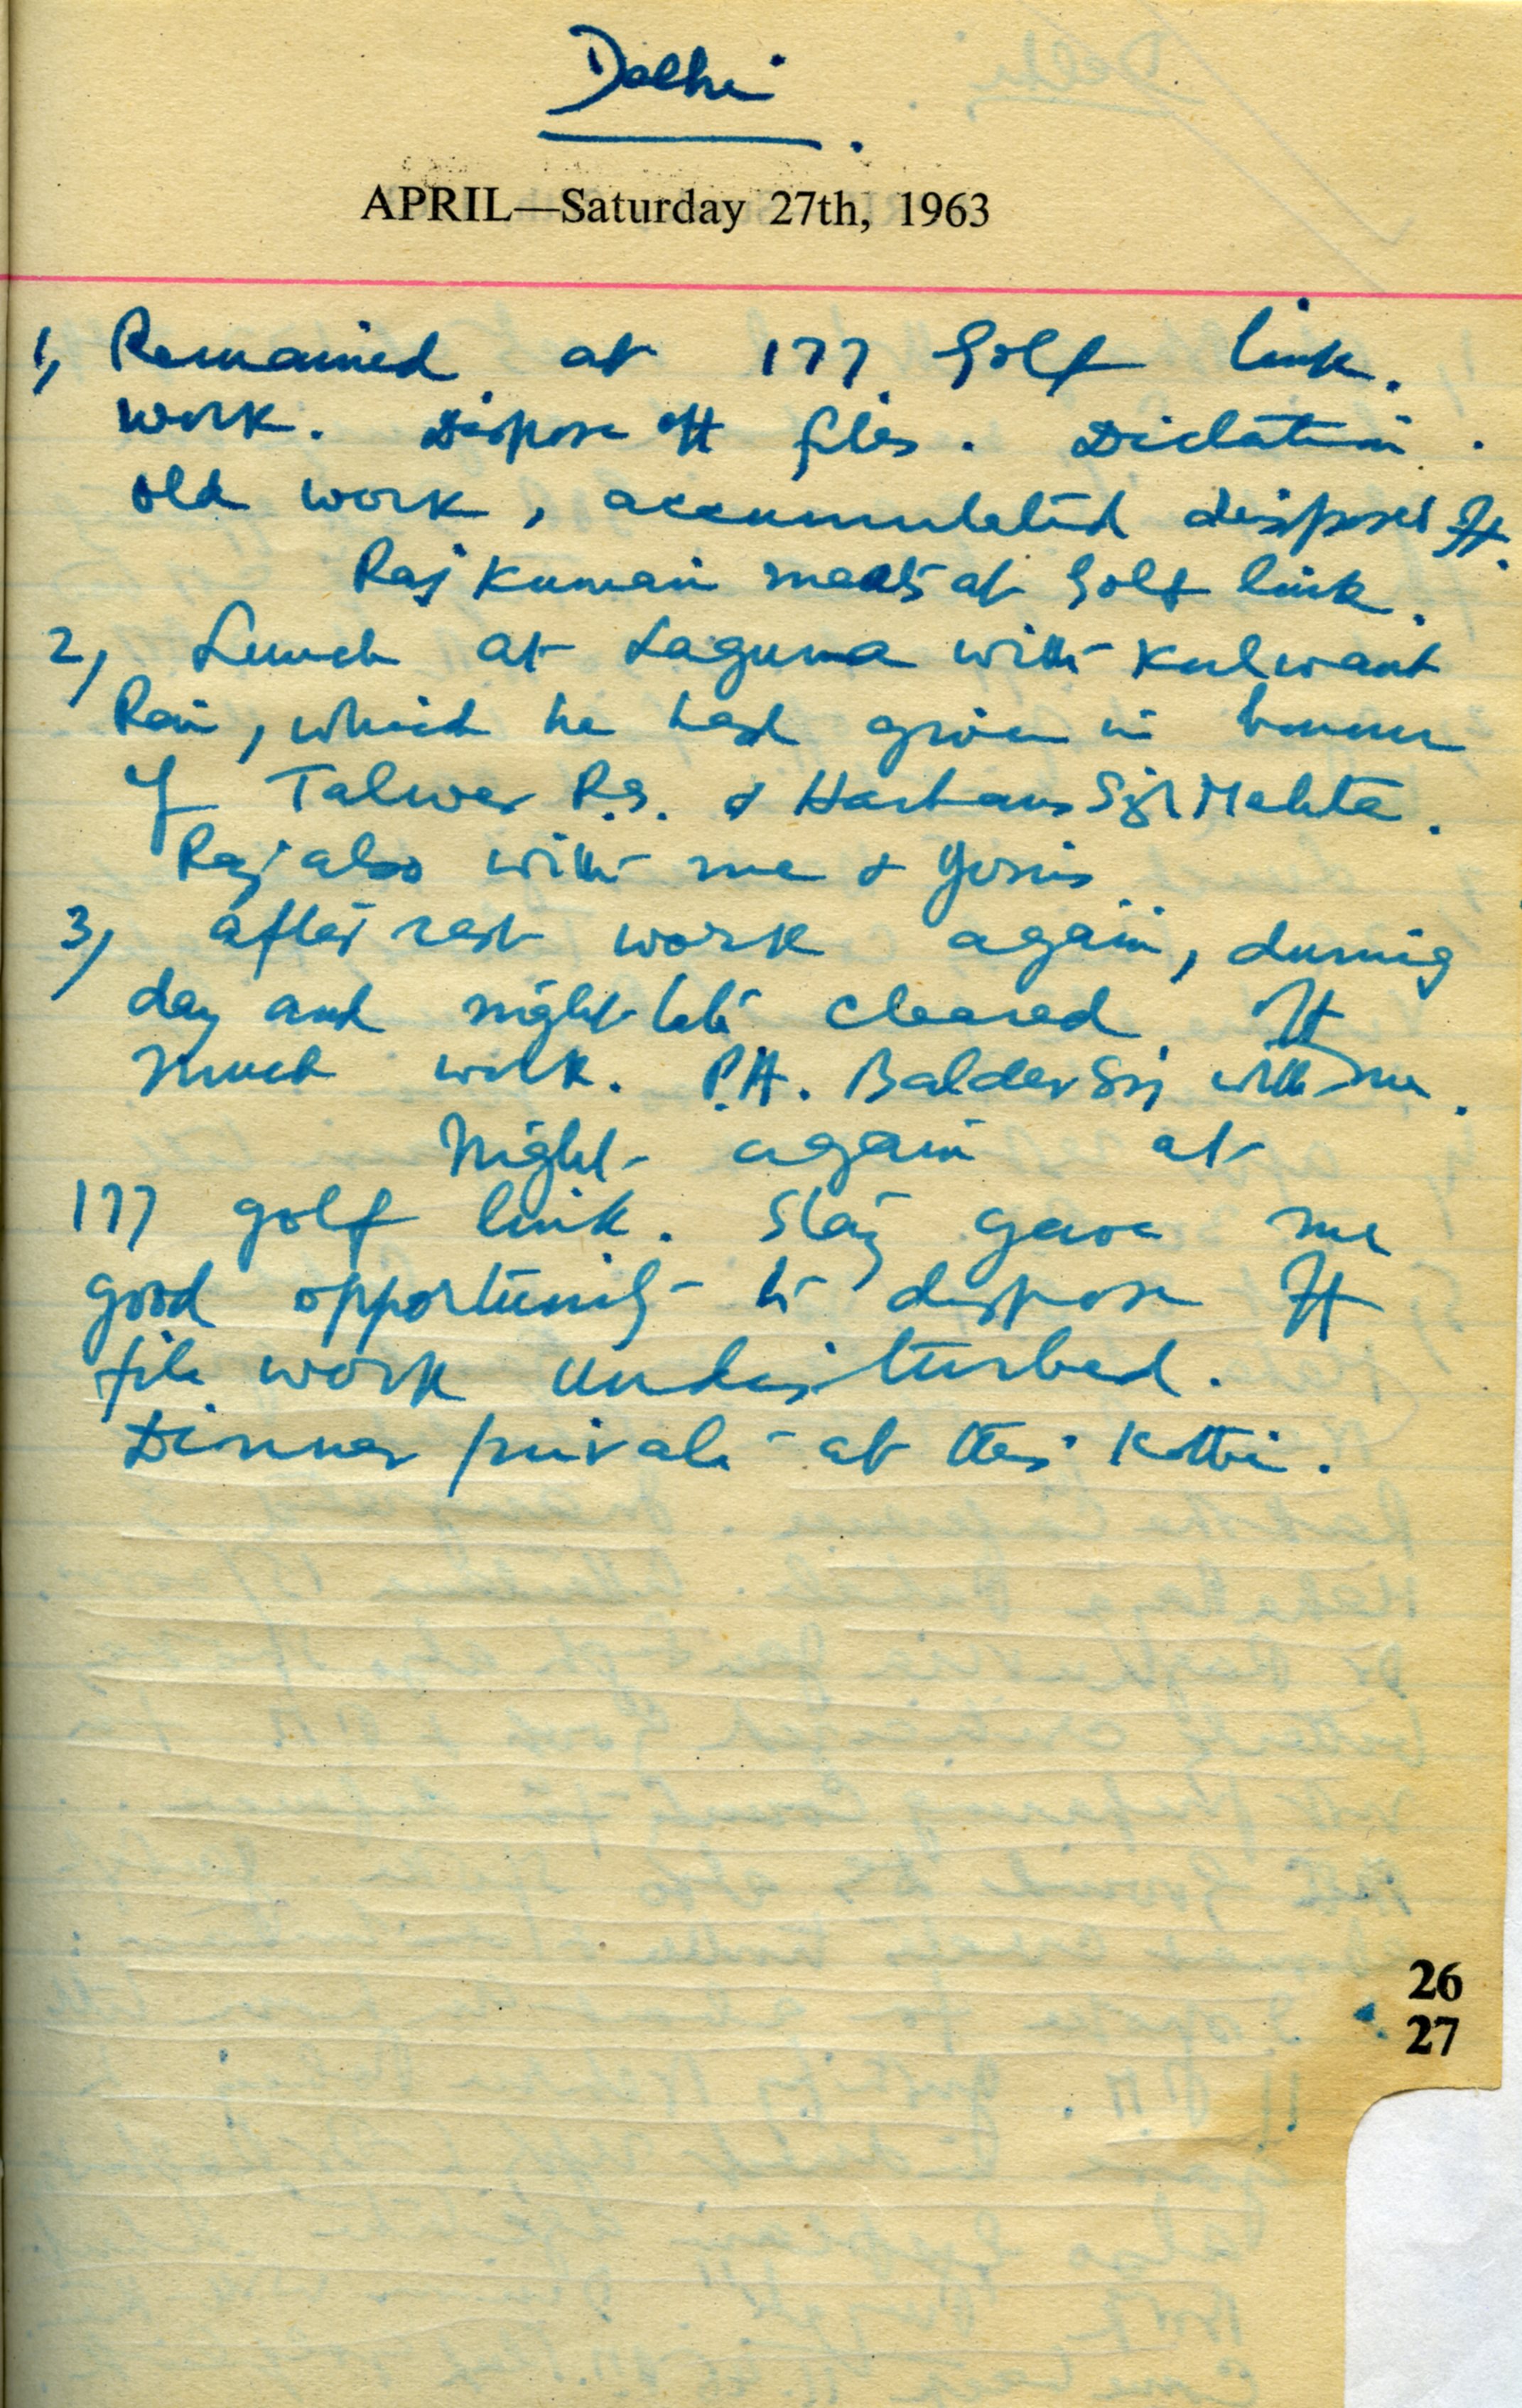 Delhi
APRIL—Saturday 27th, 1963
1, Remained at 177 Golf link.
work. Dispose off files. Dictation.
old work, accumulated disposed off.
Raj Kumari meets at Golf link.
2, Lunch at Laguna with Kulwant
Rai, which he had given in honour
of Talwar R.S. & Harbans Sgh Mehta.
Raj also with me &
3, after rest work again, during
day and night late cleared off
much work. P.A. Baldev Sgh with me.
Night again at
177 golf link. Stay gave me
good opportunity to dispose off
file work undisturbed.
Dinner private at this Kothi.
26
27